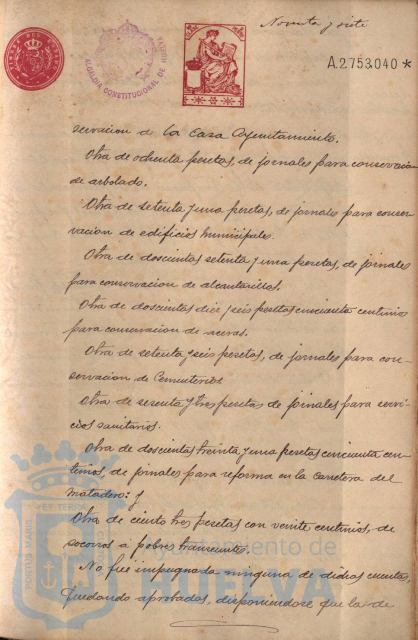 Noventa y siete
A.2.753.040 *
ALCALDIA CONSTITUCIONAL DE
servacion de la Casa Ayuntamiento.
Otra de ochenta pesetas, de jornales para conservacion
de arbolado.
Otra de setenta y una pesetas, de jornales para conser-
vacion de edificios municipales.
Otra de doscientas setenta y una pesetas, de jornales
para conservacion de alcantarillas.
Otra de doscientas diez y seis pesetas cincuenta centimos
para conservacion de aceras.
Otra de setenta y seis pesetas, de jornales para con-
servacion de Cementerios
Otra de sesenta y tres pesetas de jornales para servi-
cios sanitarios.
Otra de doscientas treinta y una pesetas cincuenta cen-
timos, de jornales para reforma en la Carretera del
Matadero: y
Otra de ciento tres pesetas con veinte centimos, de
socorros á pobres transeuntes.
No fué impugnada ninguna de dichas cuentas,
quedando aprobadas, disponiendose que las de
PORTUS MARIS ET TERRAE
Ayuntamiento de
HUELVA